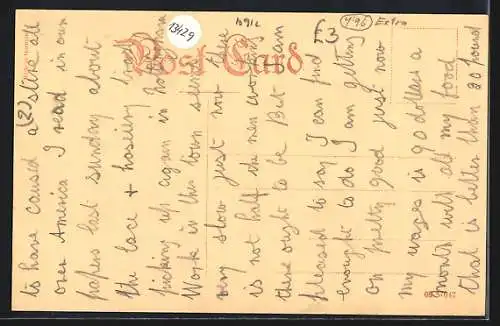 (2)
to have caused a stire all
over America I read in our
papers last sunday about
the lace + hosiery trade
picking up again in Nottingham
Work in this town seems to be
very slow just now there
is not half the men working
there ought to be But I am
pleased to say I can find
enought to do I am getting
on pretty good just now
my wages is 90 dollars a
month with all my food
that is better than 30 pound
Post Card
13/129
1912
£3
496 Extra